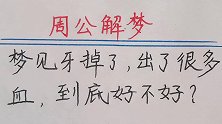 周公解梦
梦见牙掉了，出了很多
血，到底好不好？